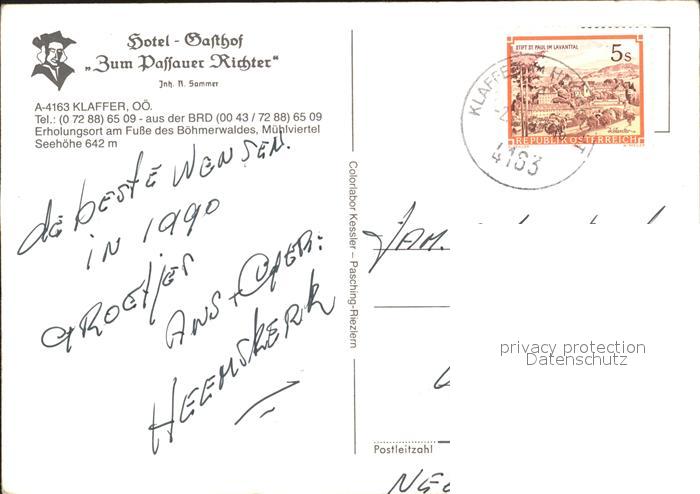 Hotel - Gasthof
„Zum Passauer Richter"
Inh. R. Sammer
A-4163 KLAFFER, OÖ.
Tel.: (0 72 88) 65 09 - aus der BRD (00 43 / 72 88) 65 09
Erholungsort am Fuße des Böhmerwaldes, Mühlviertel
Seehöhe 642 m
de beste wensen.
in 1990
GROETJES
ANS +
HEEMSKERK
Colorlabor Kessler – Pasching-Riezlern
STIFT ST. PAUL IM LAVANTTAL
5s
REPUBLIK ÖSTERREICH
KLAFFER
4163
FAM.
privacy protection
Datenschutz
Postleitzahl